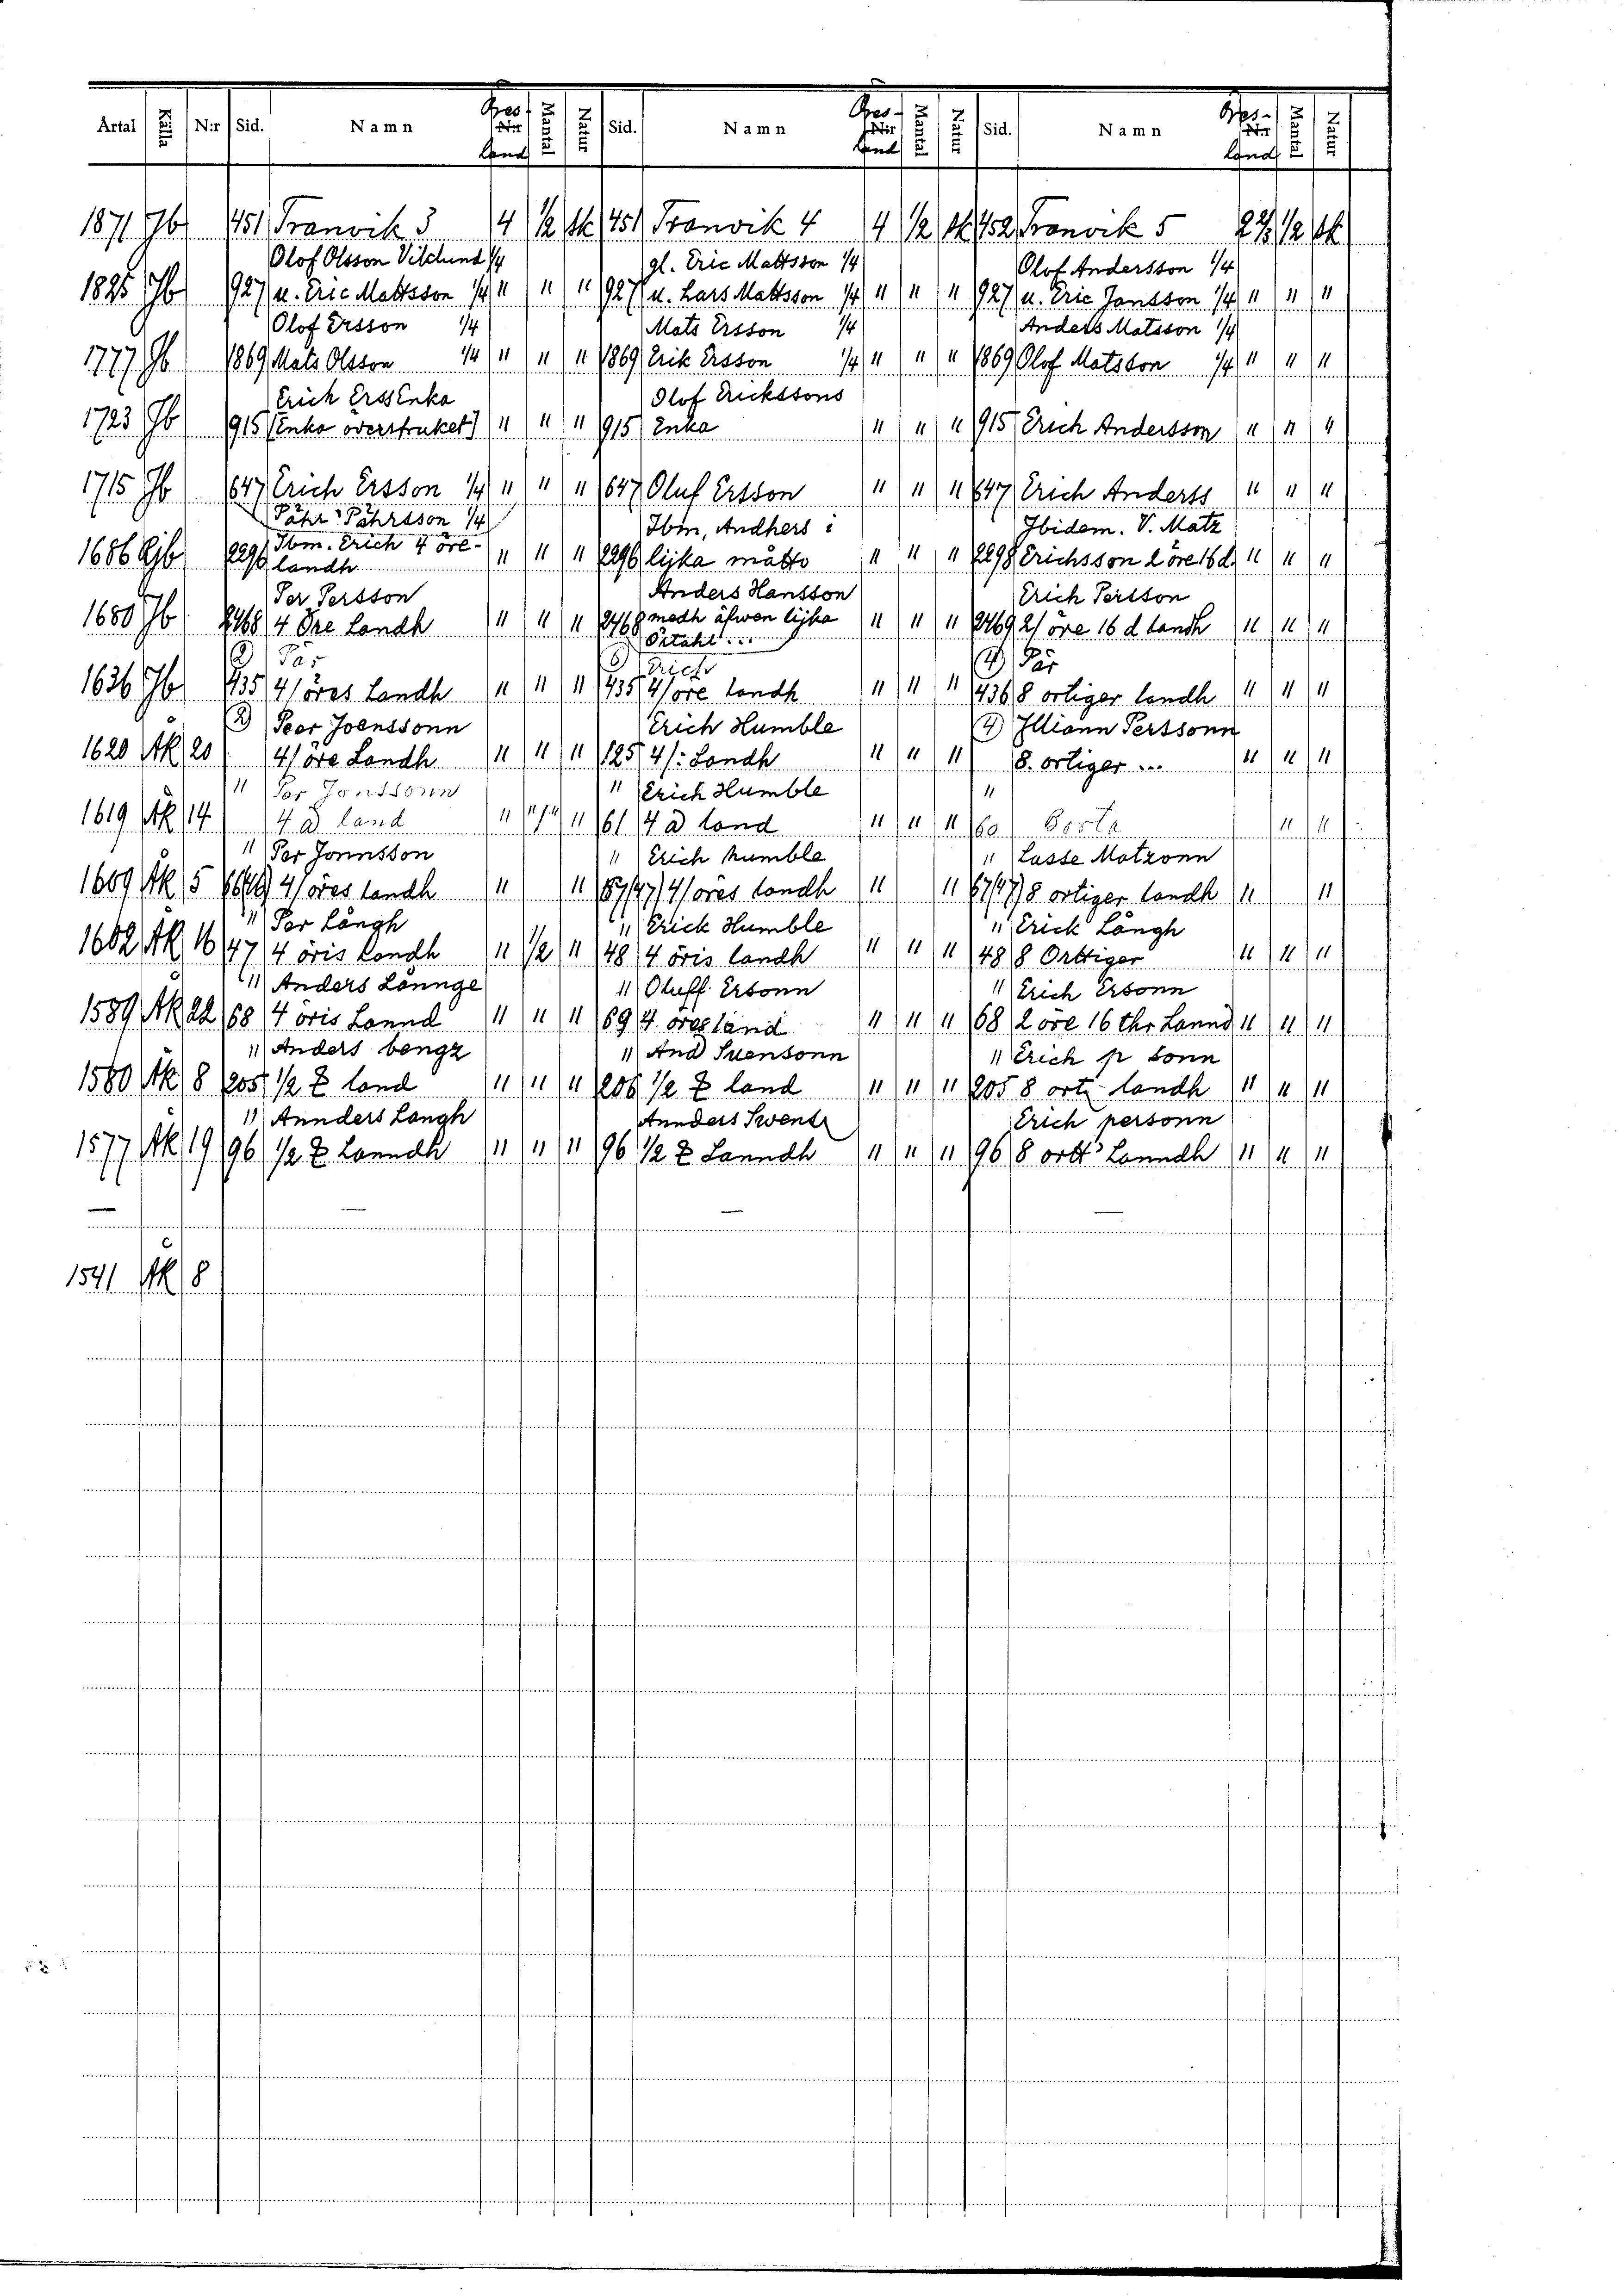 Årtal Källa N:r Sid. Namn Öres- N:r land Mantal Natur Sid. Namn Öres- N:r land Mantal Natur Sid. Namn Öres- N:r land Mantal Natur
1871 Jb 451 Tranvik 3 4 1/2 sk 451 Tranvik 4 4 1/2 sk 452 Tranvik 5 2 2/3 1/2 sk
Olof Olsson Vilclund 1/4 gl. Eric Mattsson 1/4 Olof Andersson 1/4
1825 Jb 927 u. Eric Mattsson 1/4 " " " 927 u. Lars Mattsson 1/4 " " " 927 u. Eric Jansson 1/4 " " "
Olof Ersson 1/4 Mats Ersson 1/4 Anders Matsson 1/4
1777 Jb 1869 Mats Olsson 1/4 " " " 1869 Erik Ersson 1/4 " " " 1869 Olof Matsson 1/4 " " "
Erich Erss Enka Olof Erickssons
1723 Jb 915 (Enka överstruket) " " " 915 Enka " " " 915 Erich Andersson " " "
1715 Jb 647 Erich Ersson 1/4 " " " 647 Oluf Ersson " " " 647 Erich Anderss " " "
Pähr Pährsson 1/4 Ibm, Andhers i Ibidem. V. Matz
1686 Ejb 2296 Ibm. Erich 4 öre- landh " " " 2296 lijka måtto " " " 2298 Erichsson 2 öre 16 d. " " "
Per Persson Anders Hansson Erich Persson
1680 Jb 2468 4 Öre Landh " " " 2468 medh äfwen lijka Örtahl ... " " " 2469 2/ öre 16 d landh " " "
2) Pär 3) Erich 4) Pär
1636 Jb 435 4/ öres Landh " " " 435 4/ öre landh " " " 436 8 örtiger landh " " "
3) Peer Joenssonn Erich Humble 4) Illiann Perssonn
1620 Åk 20 4/ öre Landh " " " 125 4/: Landh " " " 8. örtiger ... " " "
" Per Jonssonn " Erich Humble "
1619 Åk 14 4 land " " " 61 4 land " " " 60 Borta " "
" Per Jonnsson " Erich humble " Lasse Matzonn
1609 Åk 5 4/ öres landh " " 67(47) 4/ öres landh " " 67(47) 8 örtiger landh " "
" Per Långh " Erick Humble " Erick Långh
1602 Åk 16 47 4 öris Landh " 1/2 " 48 4 öris landh " " " 48 8 Örttiger " " "
" Anders Lännge " Oluff Ersonn " Erich Ersonn
1589 Åk 22 68 4 öris Lannd " " " 69 4 öres land " " " 68 2 öre 16 thr Lannd " " "
" Anders bengz " And Suensonn " Erich p sonn
1580 Åk 8 205 1/2 land " " " 206 1/2 land " " " 205 8 ört landh " " "
" Annders Langh Annders Swens Erich personn
1577 Åk 19 96 1/2 Lanndh " " " 96 1/2 Lanndh " " " 96 8 örtt Lanndh " " "
— — — —
1541 Åk 8